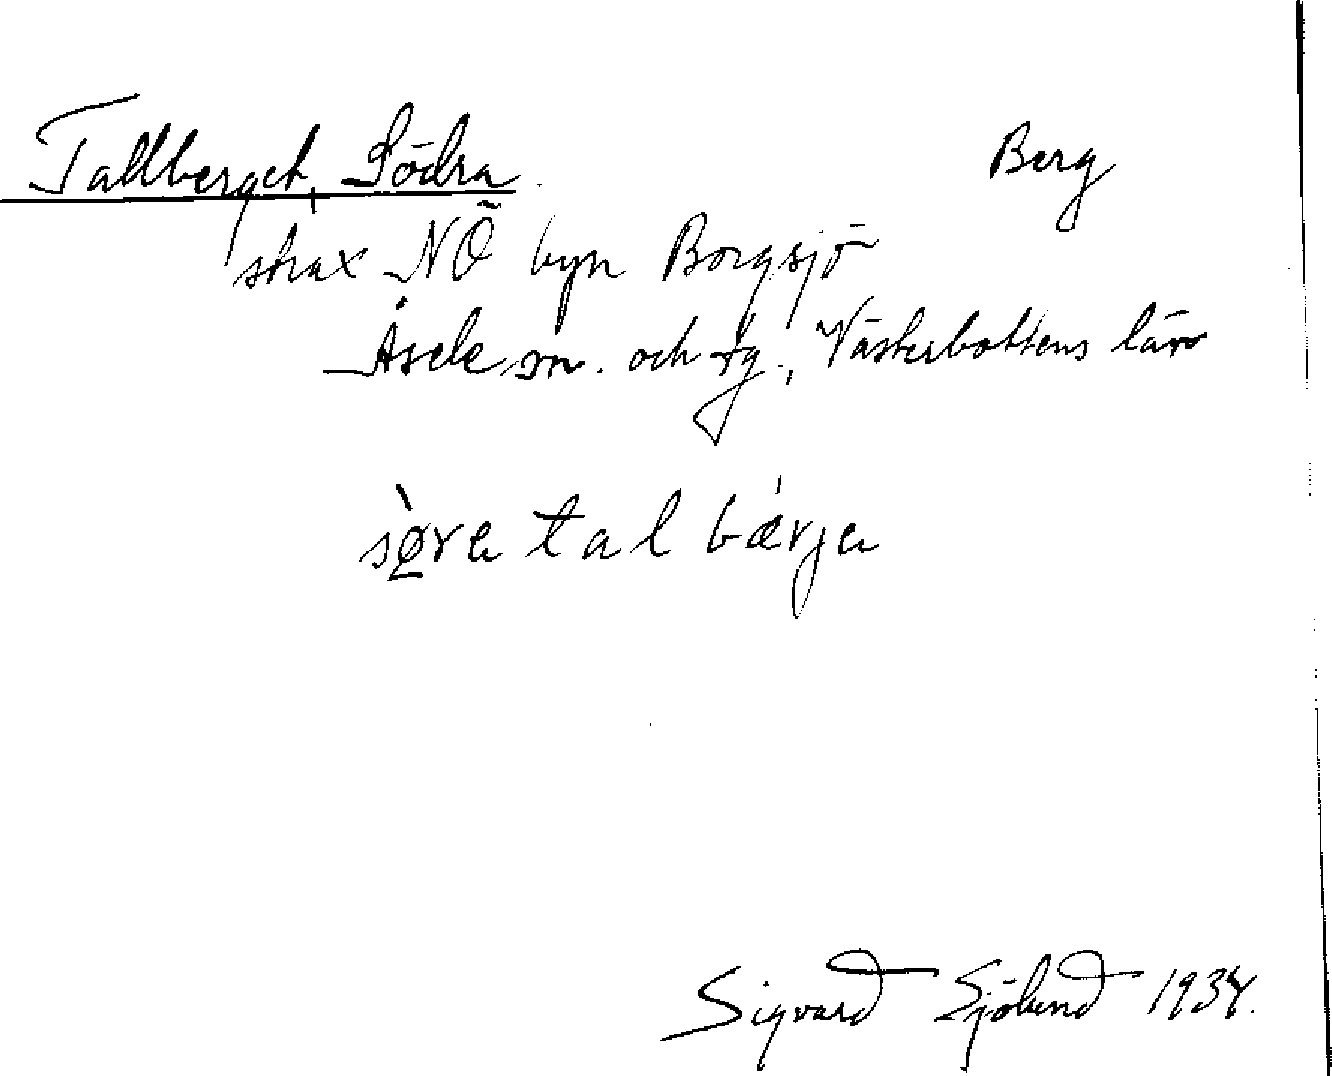 Tallberget, Södra. Berg
strax NÖ byn Borgsjö
Åsele sn. och tg., Västerbottens län
sø̀ra tal bǽrja
Sigvard Sjölund 1934.